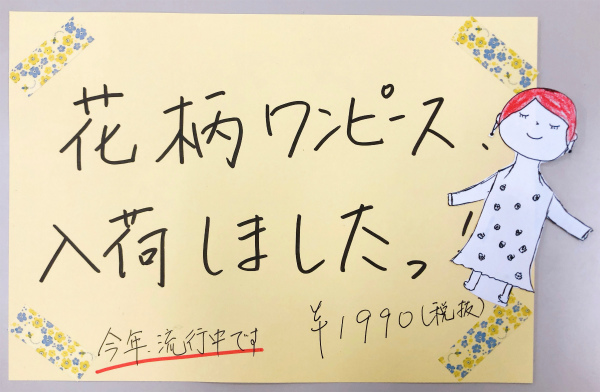 花柄ワンピース、
入荷しましたっ!
今年、流行中です
¥1990(税抜)